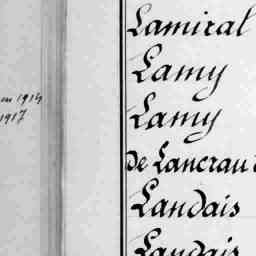 Lamiral
Lamy
Lamy
de Lancrau
Landais
Landais
1914
1917